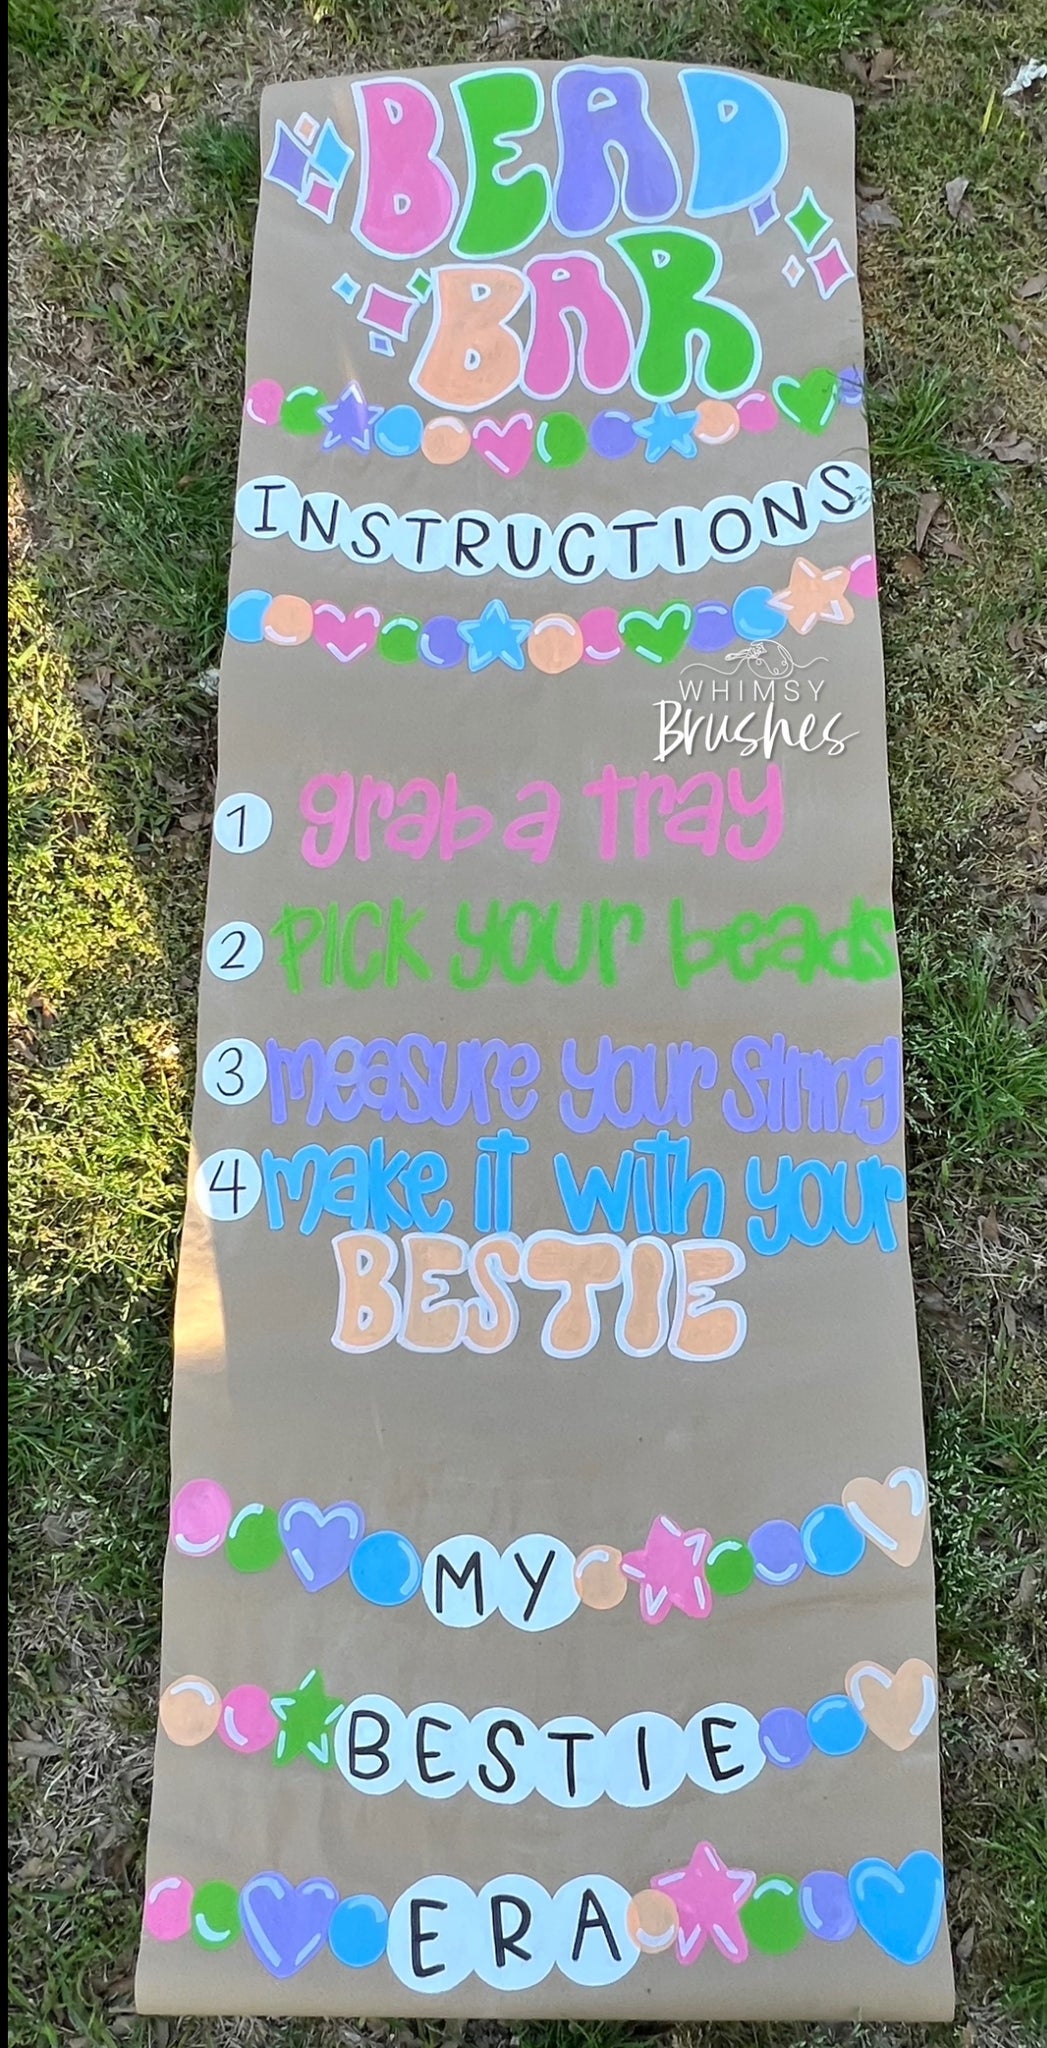 BEAD
BAR
INSTRUCTIONS
WHIMSY
Brushes
1 grab a tray
2 PICK your beads
3 measure your string
4 make it with your
BESTIE
MY
BESTIE
ERA